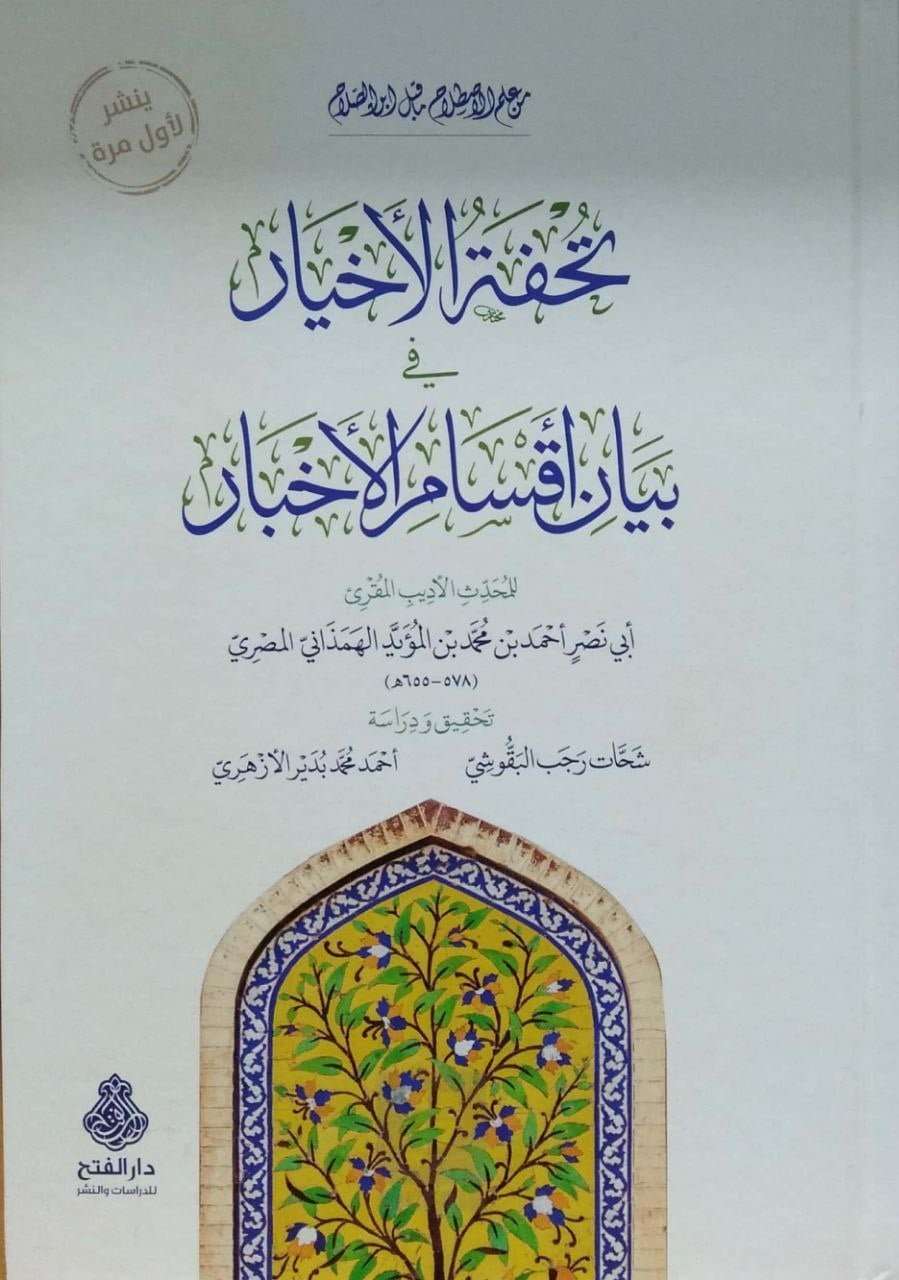 من علم الاصطلاح ما قبل ابن الصلاح
ينشر
لأول مرة
تُحْفَةُ الأَخْيَار
في
بَيَانِ أَقْسَامِ الأَخْبَار
للمُحَدِّثِ الأَدِيبِ المُقْرِئ
أبي نَصْرٍ أحْمَد بن مُحمَّد بن المُؤيَّد الهَمَذَانيّ المصْرِيّ
(٥٧٨-٦٥٥هـ)
تَحْقِيق وَدِرَاسَة
شَحَّات رَجَب البَقُّوشِيّ أحْمَد مُحمَّد بُدَيْر الأَزْهَرِيّ
دار الفتح
للدراسات والنشر